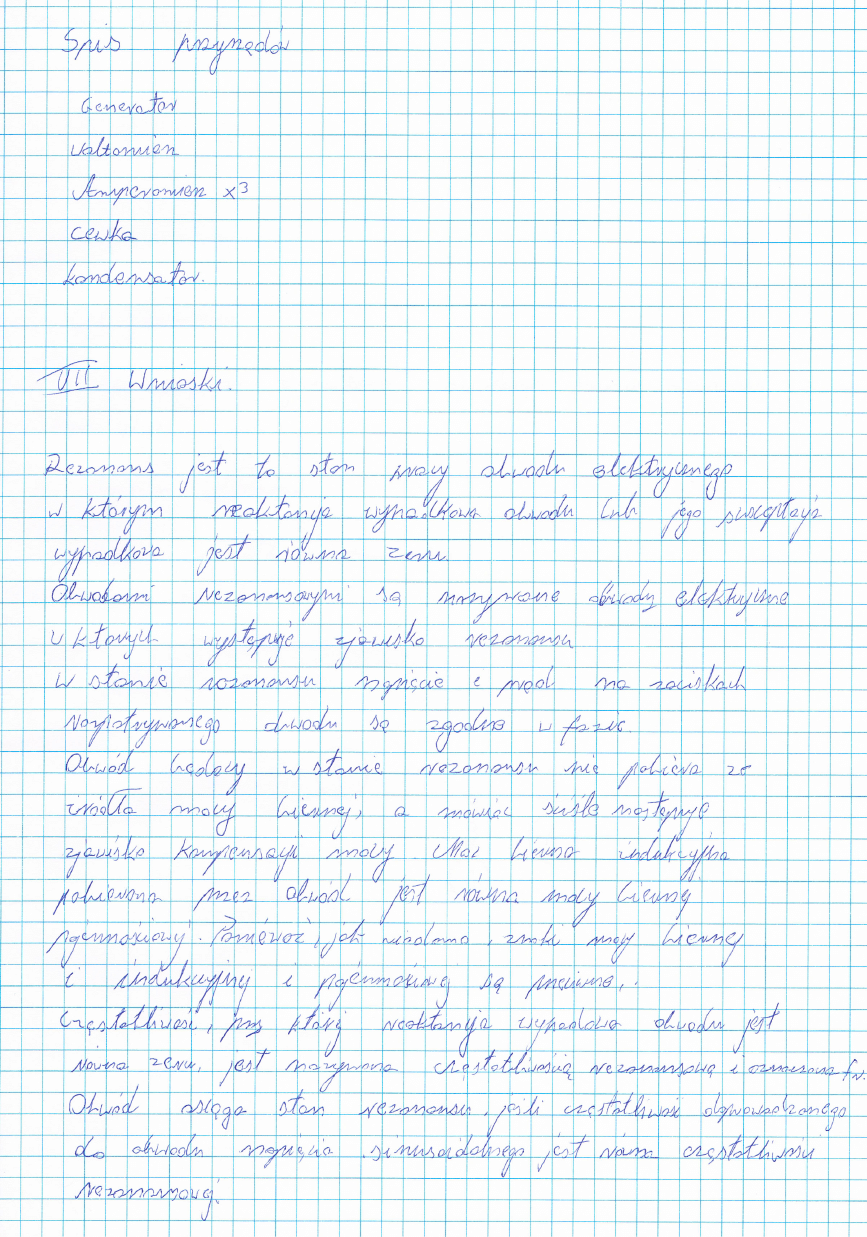 Spis przyrzędów
Generator
Voltomierz
Amperomierz x3
Cewka
Kondensator.
VII Wnioski.
Rezonans jest to stan pracy obwodu elektrycznego
w którym reaktancja wypadkowa obwodu lub jego susceptacja
wypadkowa jest równa zeru
Obwodami rezonansowymi są nazywane obwody elektryczne
w których występuje zjawisko rezonansu
W stanie rezonansu napięcie i prąd na zaciskach
rozpatrywanego obwodu są zgodne w fazie.
Obwód będący w stanie rezonansu nie pobiera ze
źródła mocy biernej, a mówiąc ściśle następuje
zjawisko kompensacji mocy. Moc bierna indukcyjna
pobierana przez obwód jest równa mocy biernej
pojemnościowej. Ponieważ, jak wiadomo, znaki mocy biernej
i indukcyjnej i pojemnościowej są przeciwne,.
Częstotliwość, przy której reaktancja wypadowa obwodu jest
równa zeru, jest nazywana częstotliwością rezonansową i oznaczana fr.
Obwód osiąga stan rezonansu, jeśli częstotliwość doprowadzonego
do obwodu napięcia sinusoidalnego jest równa częstotliwości
rezonansowej.